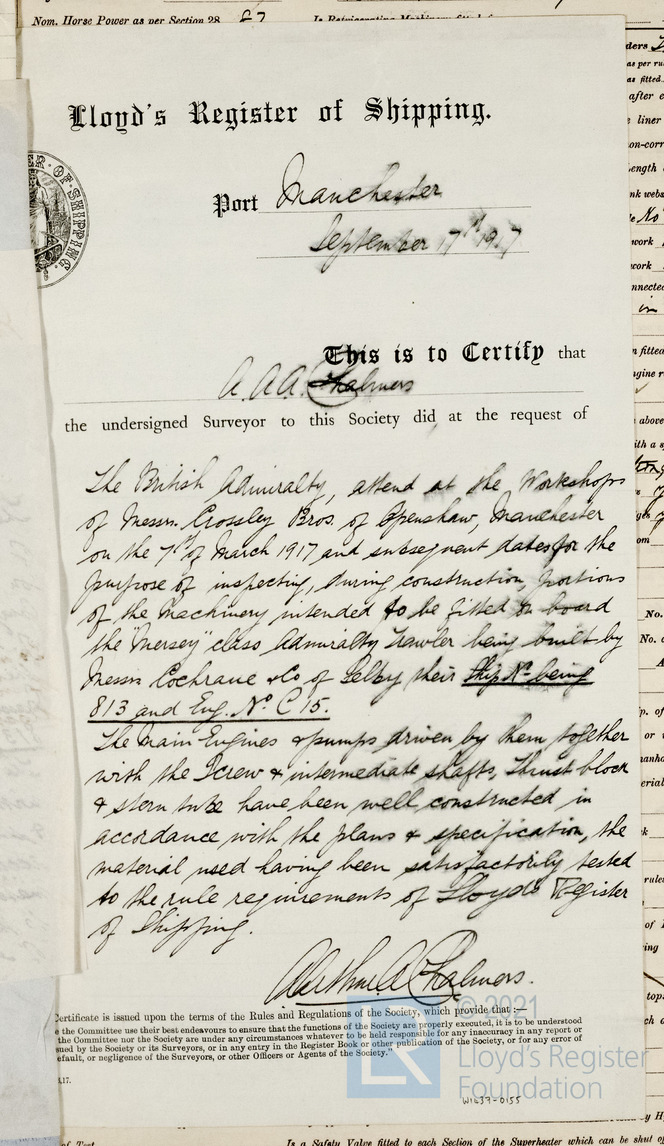 Nom. Horse Power as per Section 28 67
Lloyd's Register of Shipping.
Port Manchester
September 17th 1917
This is to Certify that
A A A. Chalmers
the undersigned Surveyor to this Society did at the request of
The British Admiralty, attend at the Workshops
of Messrs. Crossley Bros. of Openshaw, Manchester
on the 7th of March 1917 and subsequent dates for the
purpose of inspecting, during construction, portions
of the machinery intended to be fitted on board
the "Mersey" class Admiralty Trawler being built by
Messrs Cochrane & Co of Selby their Ship No being
813 and Eng. No C 15.
The Main Engines & pumps driven by them together
with the Screw & intermediate shafts, Thrust block
& stern tube have been well constructed in
accordance with the plans & specification, the
material used having been satisfactorily tested
to the rule requirements of Lloyds Register
of Shipping.
Arthur A Chalmers.
Certificate is issued upon the terms of the Rules and Regulations of the Society, which provide that :—
the Committee use their best endeavours to ensure that the functions of the Society are properly executed, it is to be understood
the Committee nor the Society are under any circumstances whatever to be held responsible for any inaccuracy in any report or
sued by the Society or its Surveyors, or in any entry in the Register Book or other publication of the Society, or for any error of
efault, or negligence of the Surveyors, or other Officers or Agents of the Society."
© 2021
LR Lloyd's Register
Foundation
W1637-0155
Is a Safety Valve fitted to each Section of the Superheater which can be shut of